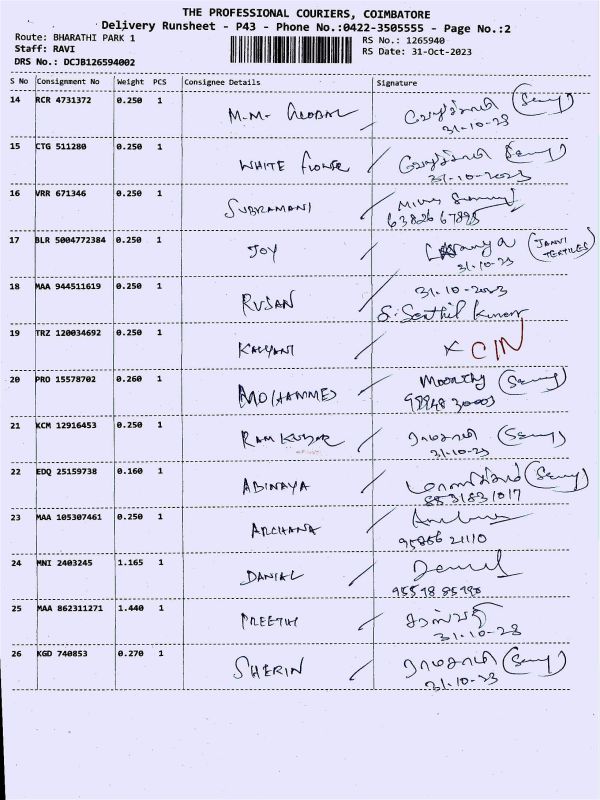 THE PROFESSIONAL COURIERS, COIMBATORE
Delivery Runsheet - P43 - Phone No.:0422-3505555 - Page No.:2
Route: BHARATHI PARK 1
RS No.: 1265940
Staff: RAVI
RS Date: 31-Oct-2023
DRS No.: DCJB126594002
S No Consignment No Weight PCS Consignee Details Signature
14 RCR 4731372 0.250 1 M.M. GLOBAL
31-10-23
15 CTG 511280 0.250 1 WHITE flower
31-10-2023
16 VRR 671346 0.250 1 SUBRAMANI
63826 67895
17 BLR 5004772384 0.250 1 JOY (JANVI TEXTILES)
31-10-23
18 MAA 944511619 0.250 1 RUSAN 31-10-2023
S. Senthil Kumar
19 TRZ 120034692 0.250 1 KALYANI X
20 PRO 15578702 0.260 1 MOHAMMED Moorthy
21 KCM 12916453 0.250 1 RAMKUMAR
31-10-23
22 EDQ 25159738 0.160 1 ABINAYA
8831831017
23 MAA 105307461 0.250 1 ARCHANA
95856 21110
24 MNI 2403245 1.165 1 DANIAL Daniel
25 MAA 862311271 1.440 1 PREETHI
31-10-23
26 KGD 740853 0.270 1 SHERIN
31-10-23